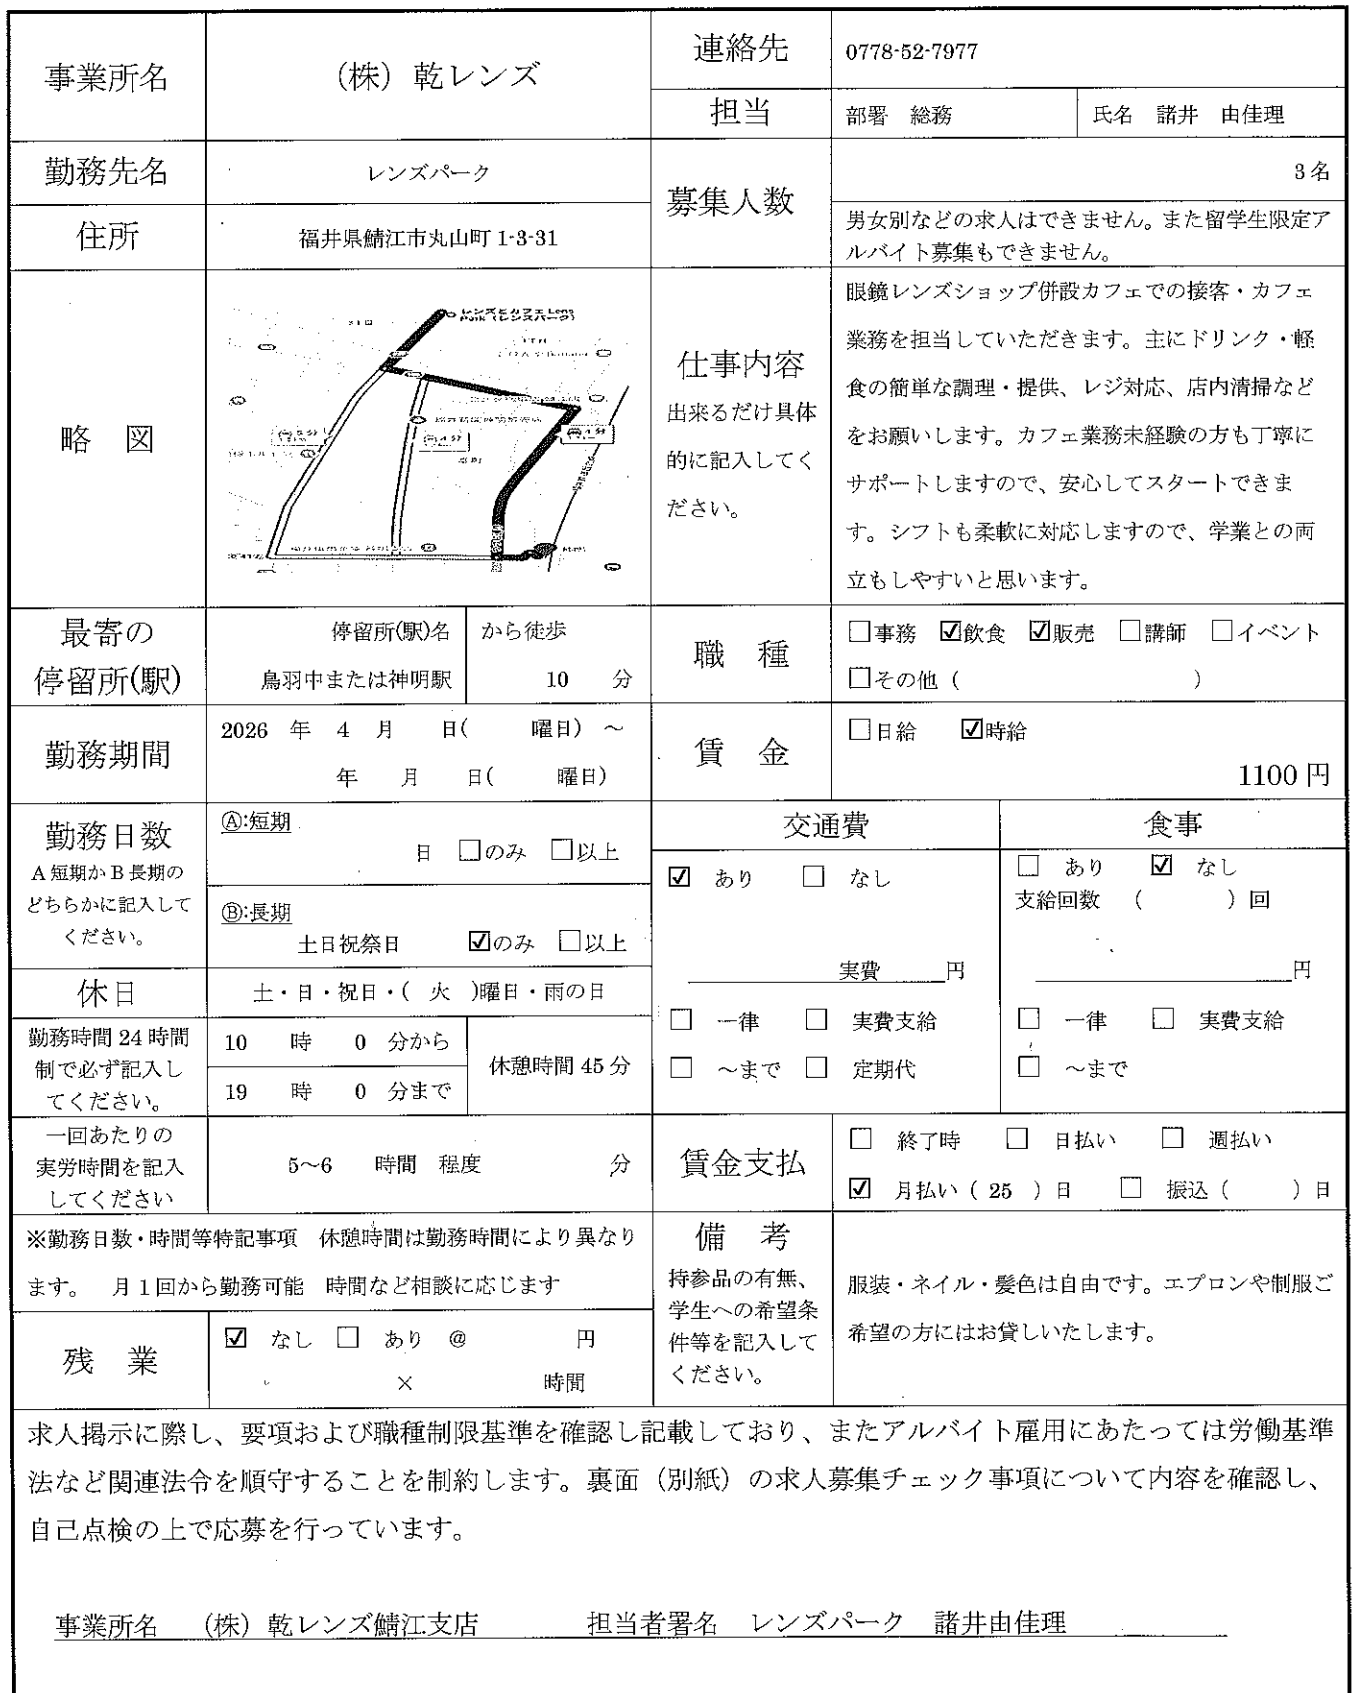 事業所名
(株) 乾レンズ
連絡先
0778-52-7977
担当
部署 総務
氏名 諸井 由佳理
勤務先名
レンズパーク
募集人数
3名
住所
福井県鯖江市丸山町 1-3-31
男女別などの求人はできません。また留学生限定ア
ルバイト募集もできません。
略 図
レンズとカフェ Lens
Park (レンズパーク)
仕事内容
出来るだけ具体
的に記入してく
ださい。
眼鏡レンズショップ併設カフェでの接客・カフェ
業務を担当していただきます。主にドリンク・軽
食の簡単な調理・提供、レジ対応、店内清掃など
をお願いします。カフェ業務未経験の方も丁寧に
サポートしますので、安心してスタートできま
す。シフトも柔軟に対応しますので、学業との両
立もしやすいと思います。
最寄の
停留所(駅)
停留所(駅)名
鳥羽中または神明駅
から徒歩
10 分
職 種
□事務 ☑飲食 ☑販売 □講師 □イベント
□その他 ( )
勤務期間
2026 年 4 月 日( 曜日) ～
年 月 日( 曜日)
賃 金
□日給 ☑時給
1100 円
勤務日数
A 短期か B 長期の
どちらかに記入して
ください。
Ⓐ:短期
日 □のみ □以上
Ⓑ:長期
土日祝祭日 ☑のみ □以上
交通費
☑ あり □ なし
実費 円
□ 一律 □ 実費支給
□ ～まで □ 定期代
食事
□ あり ☑ なし
支給回数 ( ) 回
円
□ 一律 □ 実費支給
□ ～まで
休日
土・日・祝日・( 火 )曜日・雨の日
勤務時間 24 時間
制で必ず記入し
てください。
10 時 0 分から
19 時 0 分まで
休憩時間 45 分
一回あたりの
実労時間を記入
してください
5～6 時間 程度 分
賃金支払
□ 終了時 □ 日払い □ 週払い
☑ 月払い ( 25 ) 日 □ 振込 ( ) 日
※勤務日数・時間等特記事項 休憩時間は勤務時間により異なり
ます。 月1回から勤務可能 時間など相談に応じます
備 考
持参品の有無、
学生への希望条
件等を記入して
ください。
服装・ネイル・髪色は自由です。エプロンや制服ご
希望の方にはお貸しいたします。
残 業
☑ なし □ あり @ 円
× 時間
求人掲示に際し、要項および職種制限基準を確認し記載しており、またアルバイト雇用にあたっては労働基準
法など関連法令を順守することを制約します。裏面（別紙）の求人募集チェック事項について内容を確認し、
自己点検の上で応募を行っています。
事業所名 (株) 乾レンズ鯖江支店 担当者署名 レンズパーク 諸井由佳理